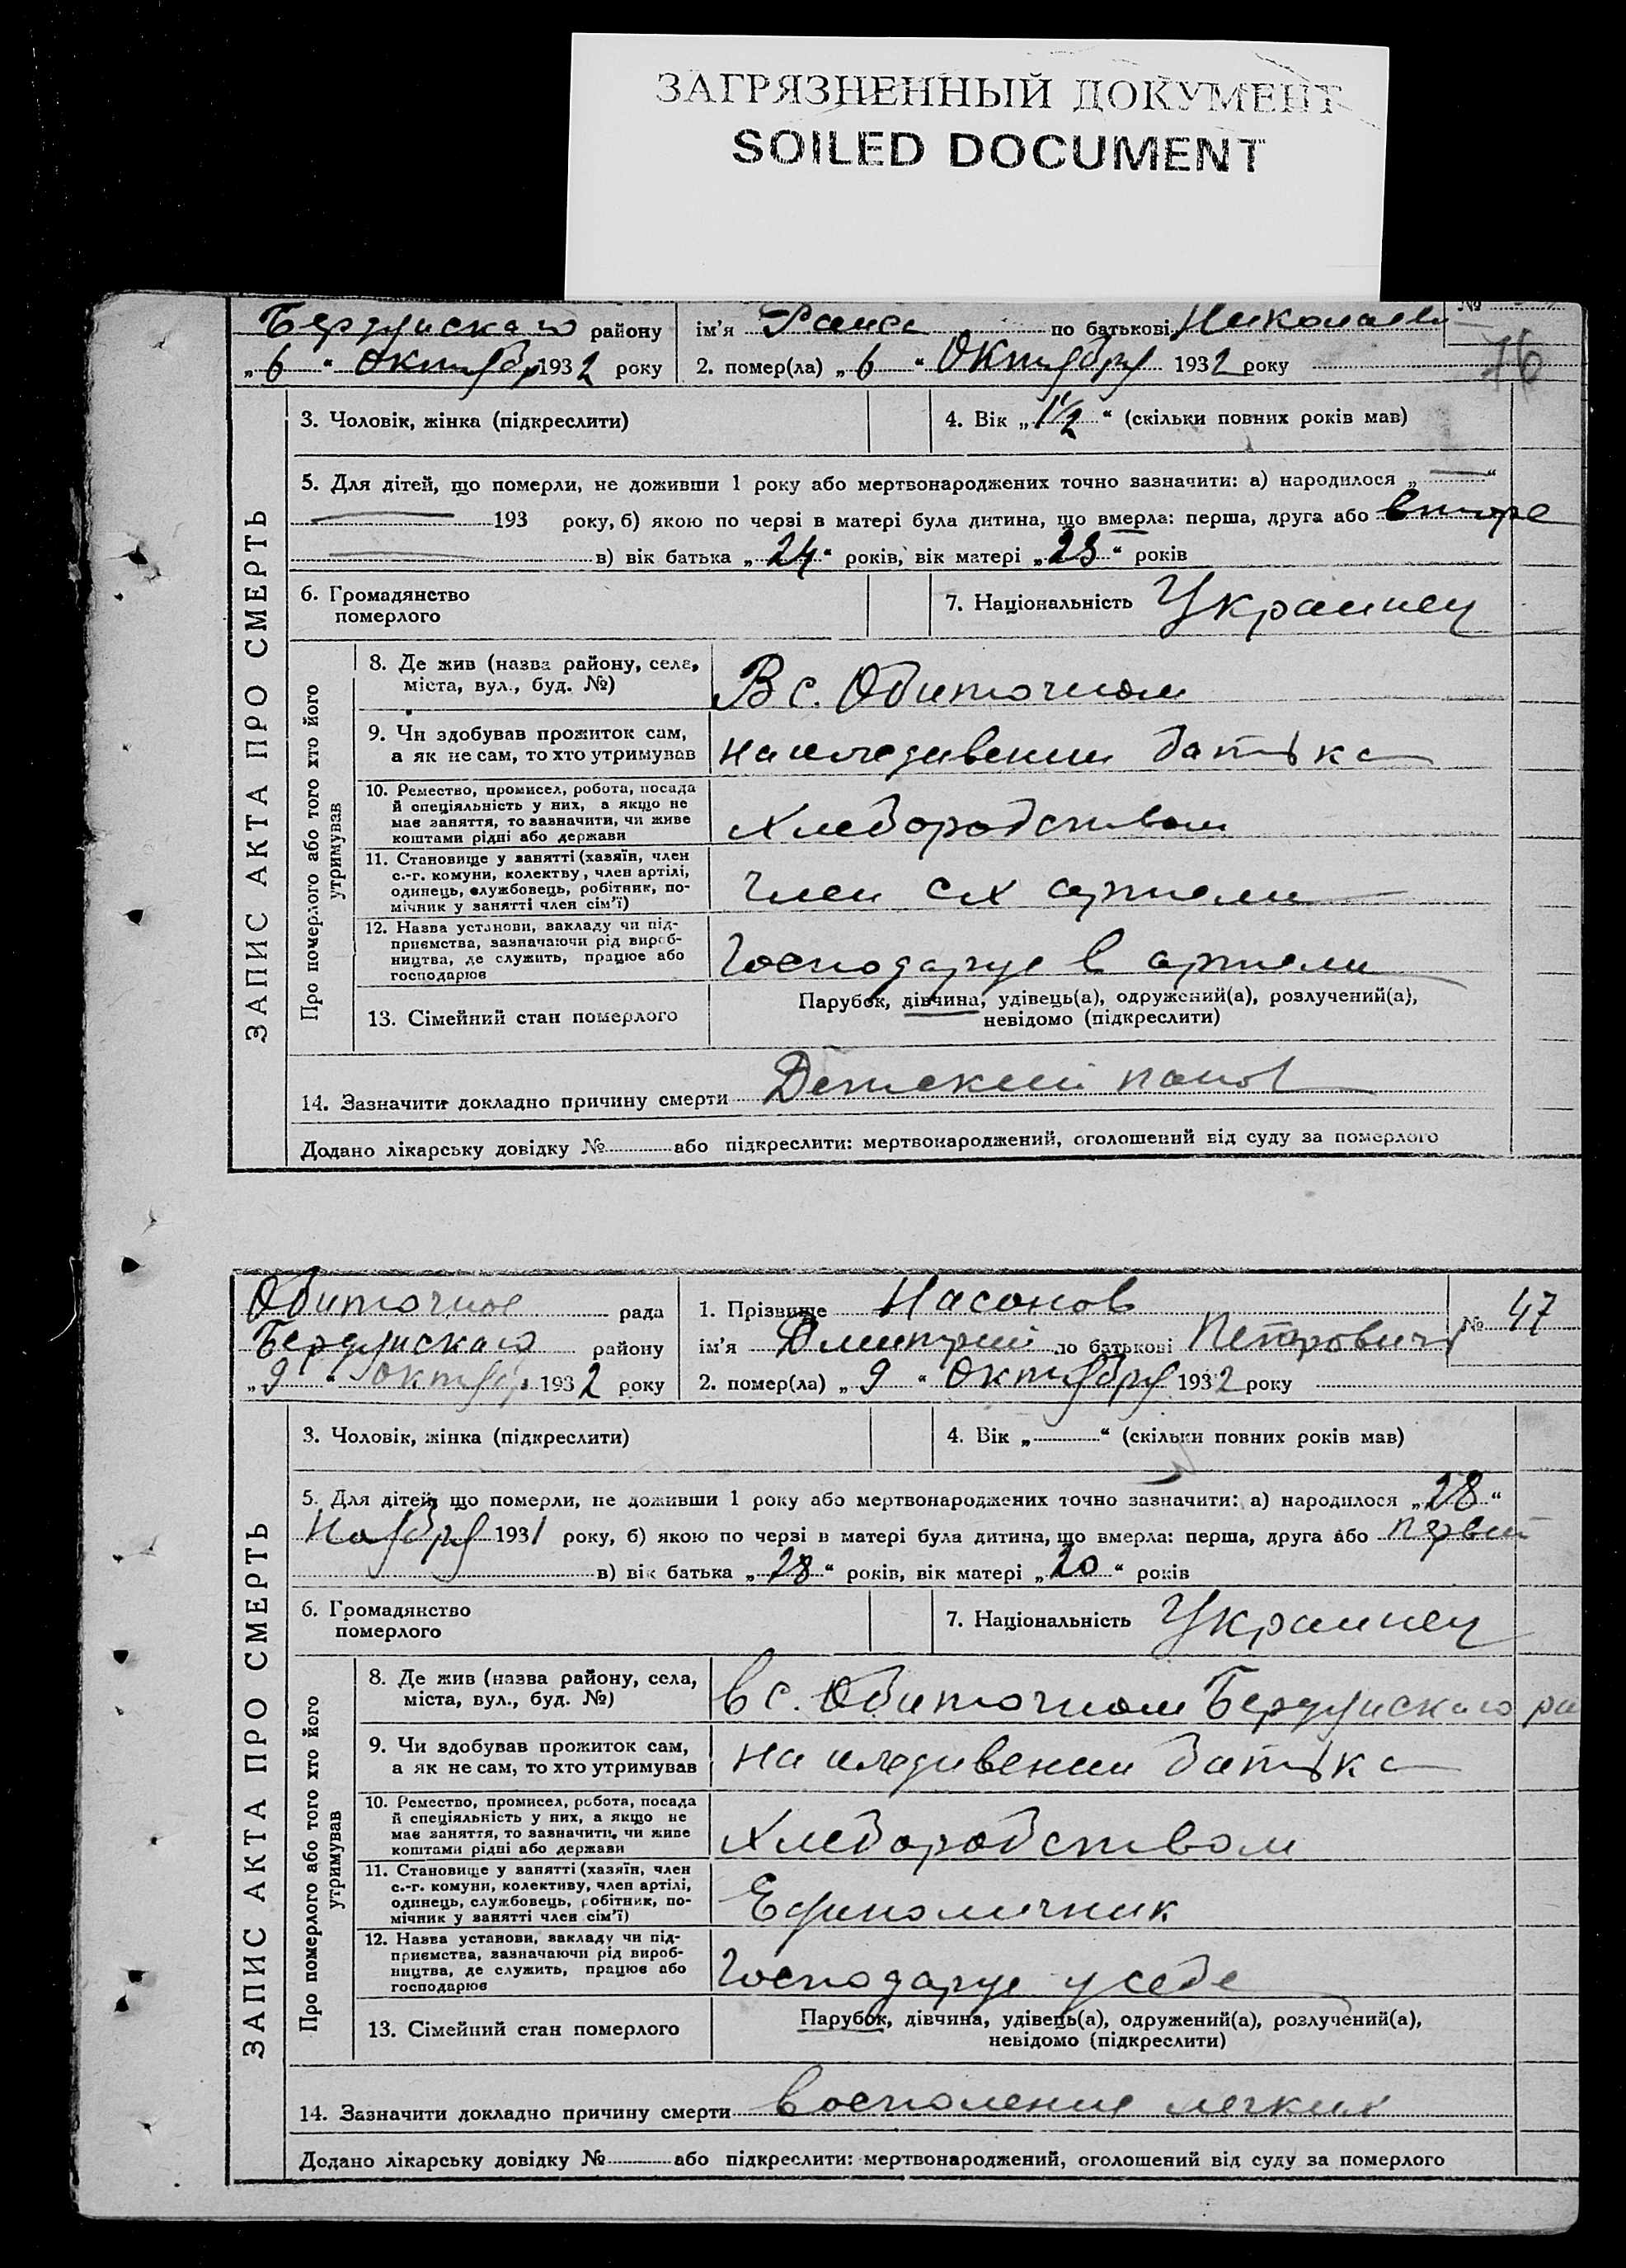 ЗАГРЯЗНЕННЫЙ ДОКУМЕНТ
SOILED DOCUMENT
Бердянскаго району
ім'я Раиса по батькові Николаев
№
„6“ Октября 1932 року
2. помер(ла) „6“ Октября 1932 року
76
ЗАПИС АКТА ПРО СМЕРТЬ
3. Чоловік, жінка (підкреслити)
4. Вік „1 1/2“ (скільки повних років мав)
5. Для дітей, що померли, не доживши 1 року або мертвонароджених точно зазначити: а) народилося „—“
— 193 року, б) якою по черзі в матері була дитина, що вмерла: перша, друга або вторе
— в) вік батька „24“ років, вік матері „23“ років
6. Громадянство
померлого
7. Національність Украинец
Про померлого або того хто його
утримував
8. Де жив (назва району, села,
міста, вул., буд. №)
В с. Обиточном
9. Чи здобував прожиток сам,
а як не сам, то хто утримував
на иждивении батька
10. Ремество, промисел, робота, посада
й спеціяльність у них, а якщо не
має заняття, то зазначити, чи живе
коштами рідні або держави
Хлеборобством
11. Становище у занятті (хазяїн, член
с.-г. комуни, колектву, член артілі,
одинець, службовець, робітник, по-
мічник у занятті член сім'ї)
член с х артели
12. Назва установи, закладу чи під-
приємства, зазначаючи рід вироб-
ництва, де служить, працює або
господарює
Господарує в артели
13. Сімейний стан померлого
Парубок, дівчина, удівець(а), одружений(а), розлучений(а),
невідомо (підкреслити)
14. Зазначити докладно причину смерти Детский понос
Додано лікарську довідку № або підкреслити: мертвонароджений, оголошений від суду за померлого
Обиточное рада
1. Прізвище Насонов
№ 47
Бердянскаго району
ім'я Дмитрий по батькові Петрович
„9“ Октябр 1932 року
2. помер(ла) „9“ Октября 1932 року
ЗАПИС АКТА ПРО СМЕРТЬ
3. Чоловік, жінка (підкреслити)
4. Вік „“ (скільки повних років мав)
5. Для дітей, що померли, не доживши 1 року або мертвонароджених точно зазначити: а) народилося „28“
Ноября 1931 року, б) якою по черзі в матері була дитина, що вмерла: перша, друга або первый
в) вік батька „28“ років, вік матері „20“ років
6. Громадянство
померлого
7. Національність Украинец
Про померлого або того хто його
утримував
8. Де жив (назва району, села,
міста, вул., буд. №)
в с. Обиточном Бердянскаго ра
9. Чи здобував прожиток сам,
а як не сам, то хто утримував
на иждивении батька
10. Ремество, промисел, робота, посада
й спеціяльність у них, а якщо не
має заняття, то зазначити, чи живе
коштами рідні або держави
Хлеборобством
11. Становище у занятті (хазяїн, член
с.-г. комуни, колективу, член артілі,
одинець, службовець, робітник, по-
мічник у занятті член сім'ї)
Единоличник
12. Назва установи, закладу чи під-
приємства, зазначаючи рід вироб-
ництва, де служить, працює або
господарює
Господарує у себе
13. Сімейний стан померлого
Парубок, дівчина, удівець(а), одружений(а), розлучений(а),
невідомо (підкреслити)
14. Зазначити докладно причину смерти восполение легких
Додано лікарську довідку № або підкреслити: мертвонароджений, оголошений від суду за померлого